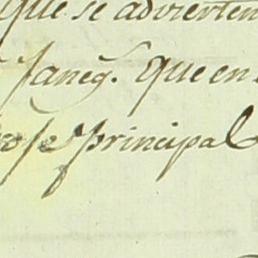 que se advierten
Janeg.ˢ que en
se principal